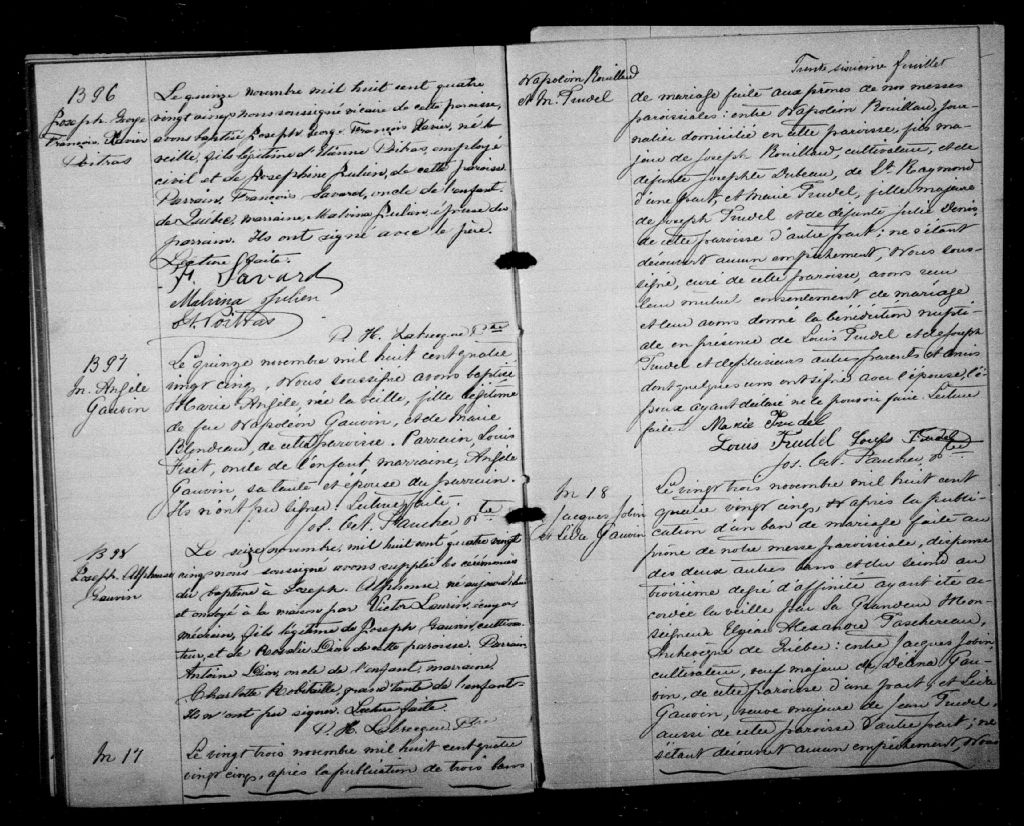 B 96
Joseph George
François Xavier
Poitras
Le quinze novembre mil huit cent quatre
vingt cinq nous soussigné vicaire de cette paroisse,
avons baptisé Joseph George François Xavier, né la
veille, fils légitime d'Etienne Poitras, employé
civil et de Joséphine Julien, de cette paroisse
Parrain, François Savard, oncle de l'enfant
de Québec, marraine, Malvina Julien, épouse du
parrain. Ils ont signé avec le père.
Lecture faite.
F. Savard
Malvina Julien
Et. Poitras
P. H. Labrecque Ptre
B 97
M. Angèle
Gauvin
Le quinze novembre mil huit cent quatre
vingt cinq, Nous soussigné avons baptisé
Marie Angèle, née la veille, fille légitime
de feu Napoléon Gauvin, et de Marie
Blondeau, de cette paroisse. Parrain, Louis
Fiset, oncle de l'enfant, marraine, Angèle
Gauvin, sa tante et épouse du parrain.
Ils n'ont pu signer. Lecture faite.
Jos. Oct. Faucher Ptre
B 98
Joseph Alphonse
Gauvin
Le seize novembre, mil huit cent quatre vingt
cinq nous soussigné avons suppléé les cérémonies
du baptême à Joseph Alphonse né aujourd'hui
et ondoyé à la maison par Victor
médecin, fils légitime de Joseph Gauvin, cultiva-
teur, et de Rosalie Dion de cette paroisse. Parrain
Antoine Dion, oncle de l'enfant, marraine,
Charlotte Robitaille, grand'tante de l'enfant.
Ils n'ont pu signer. Lecture faite.
P. H. Labrecque Ptre
M 17
Le vingt trois novembre mil huit cent quatre
vingt cinq, après la publication de trois bans
Napoléon Rouillard
et M. Trudel
Trente sixième feuillet
de mariage faite aux prônes de nos messes
paroissiales: entre Napoléon Rouillard, jour-
nalier domicilié en cette paroisse, fils ma-
jeur de Joseph Rouillard, cultivateur, et de
défunte Josephte Dubeau, de St. Raymond
d'une part, et Marie Trudel, fille majeure
de Joseph Trudel et de défunte Julie Denis,
de cette paroisse d'autre part; ne s'étant
découvert aucun empêchement, Nous sous-
signé, curé de cette paroisse, avons reçu
leur mutuel consentement de mariage
et leur avons donné la bénédiction nuptia-
le en présence de Louis Trudel et de Joseph
Trudel et de plusieurs autres parents et amis
dont quelques uns ont signé avec l'épouse, l'é-
poux ayant déclaré ne le pouvoir faire. Lecture
faite. Marie Trudel
Louis Trudel Joseph Trudel
Jos. Oct. Faucher Ptre
M 18
Jacques Jobin
et Lédée Gauvin
Le vingt trois novembre mil huit cent
quatre vingt cinq, après la publi-
cation d'un ban de mariage faite au
prône de notre messe paroissiale, dispense
des deux autres bans et du second au
troisième degré d'affinité ayant été ac-
cordée la veille par Sa Grandeur Mon-
seigneur Elzéar Alexandre Taschereau,
Archevêque de Québec: entre Jacques Jobin
cultivateur, veuf majeur de Délina Gau-
vin, de cette paroisse d'une part; et Lédée
Gauvin, veuve majeure de Jean Trudel,
aussi de cette paroisse d'autre part; ne
s'étant découvert aucun empêchement, Nous